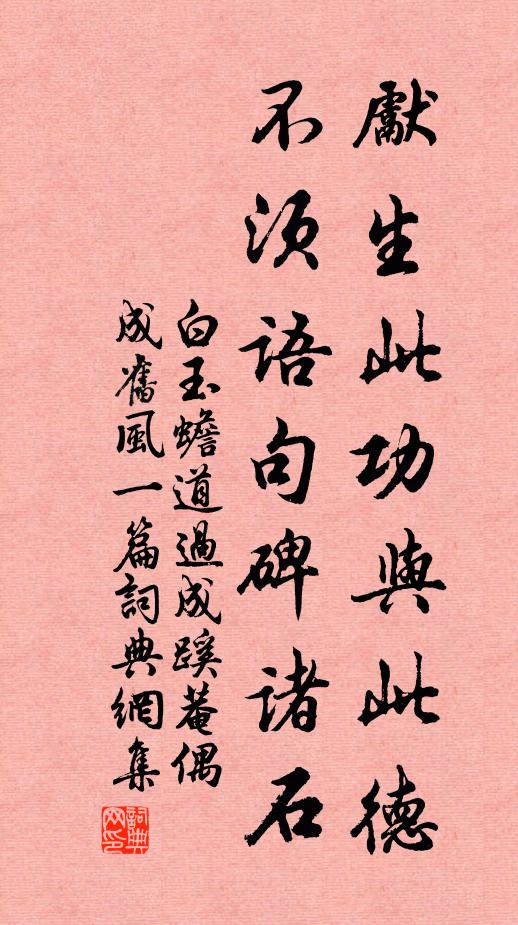 獻生此功與此德
不須語句碑諸石
白玉蟾道過成蹊菴偶
成舊風一篇詞典網集
詞典网印